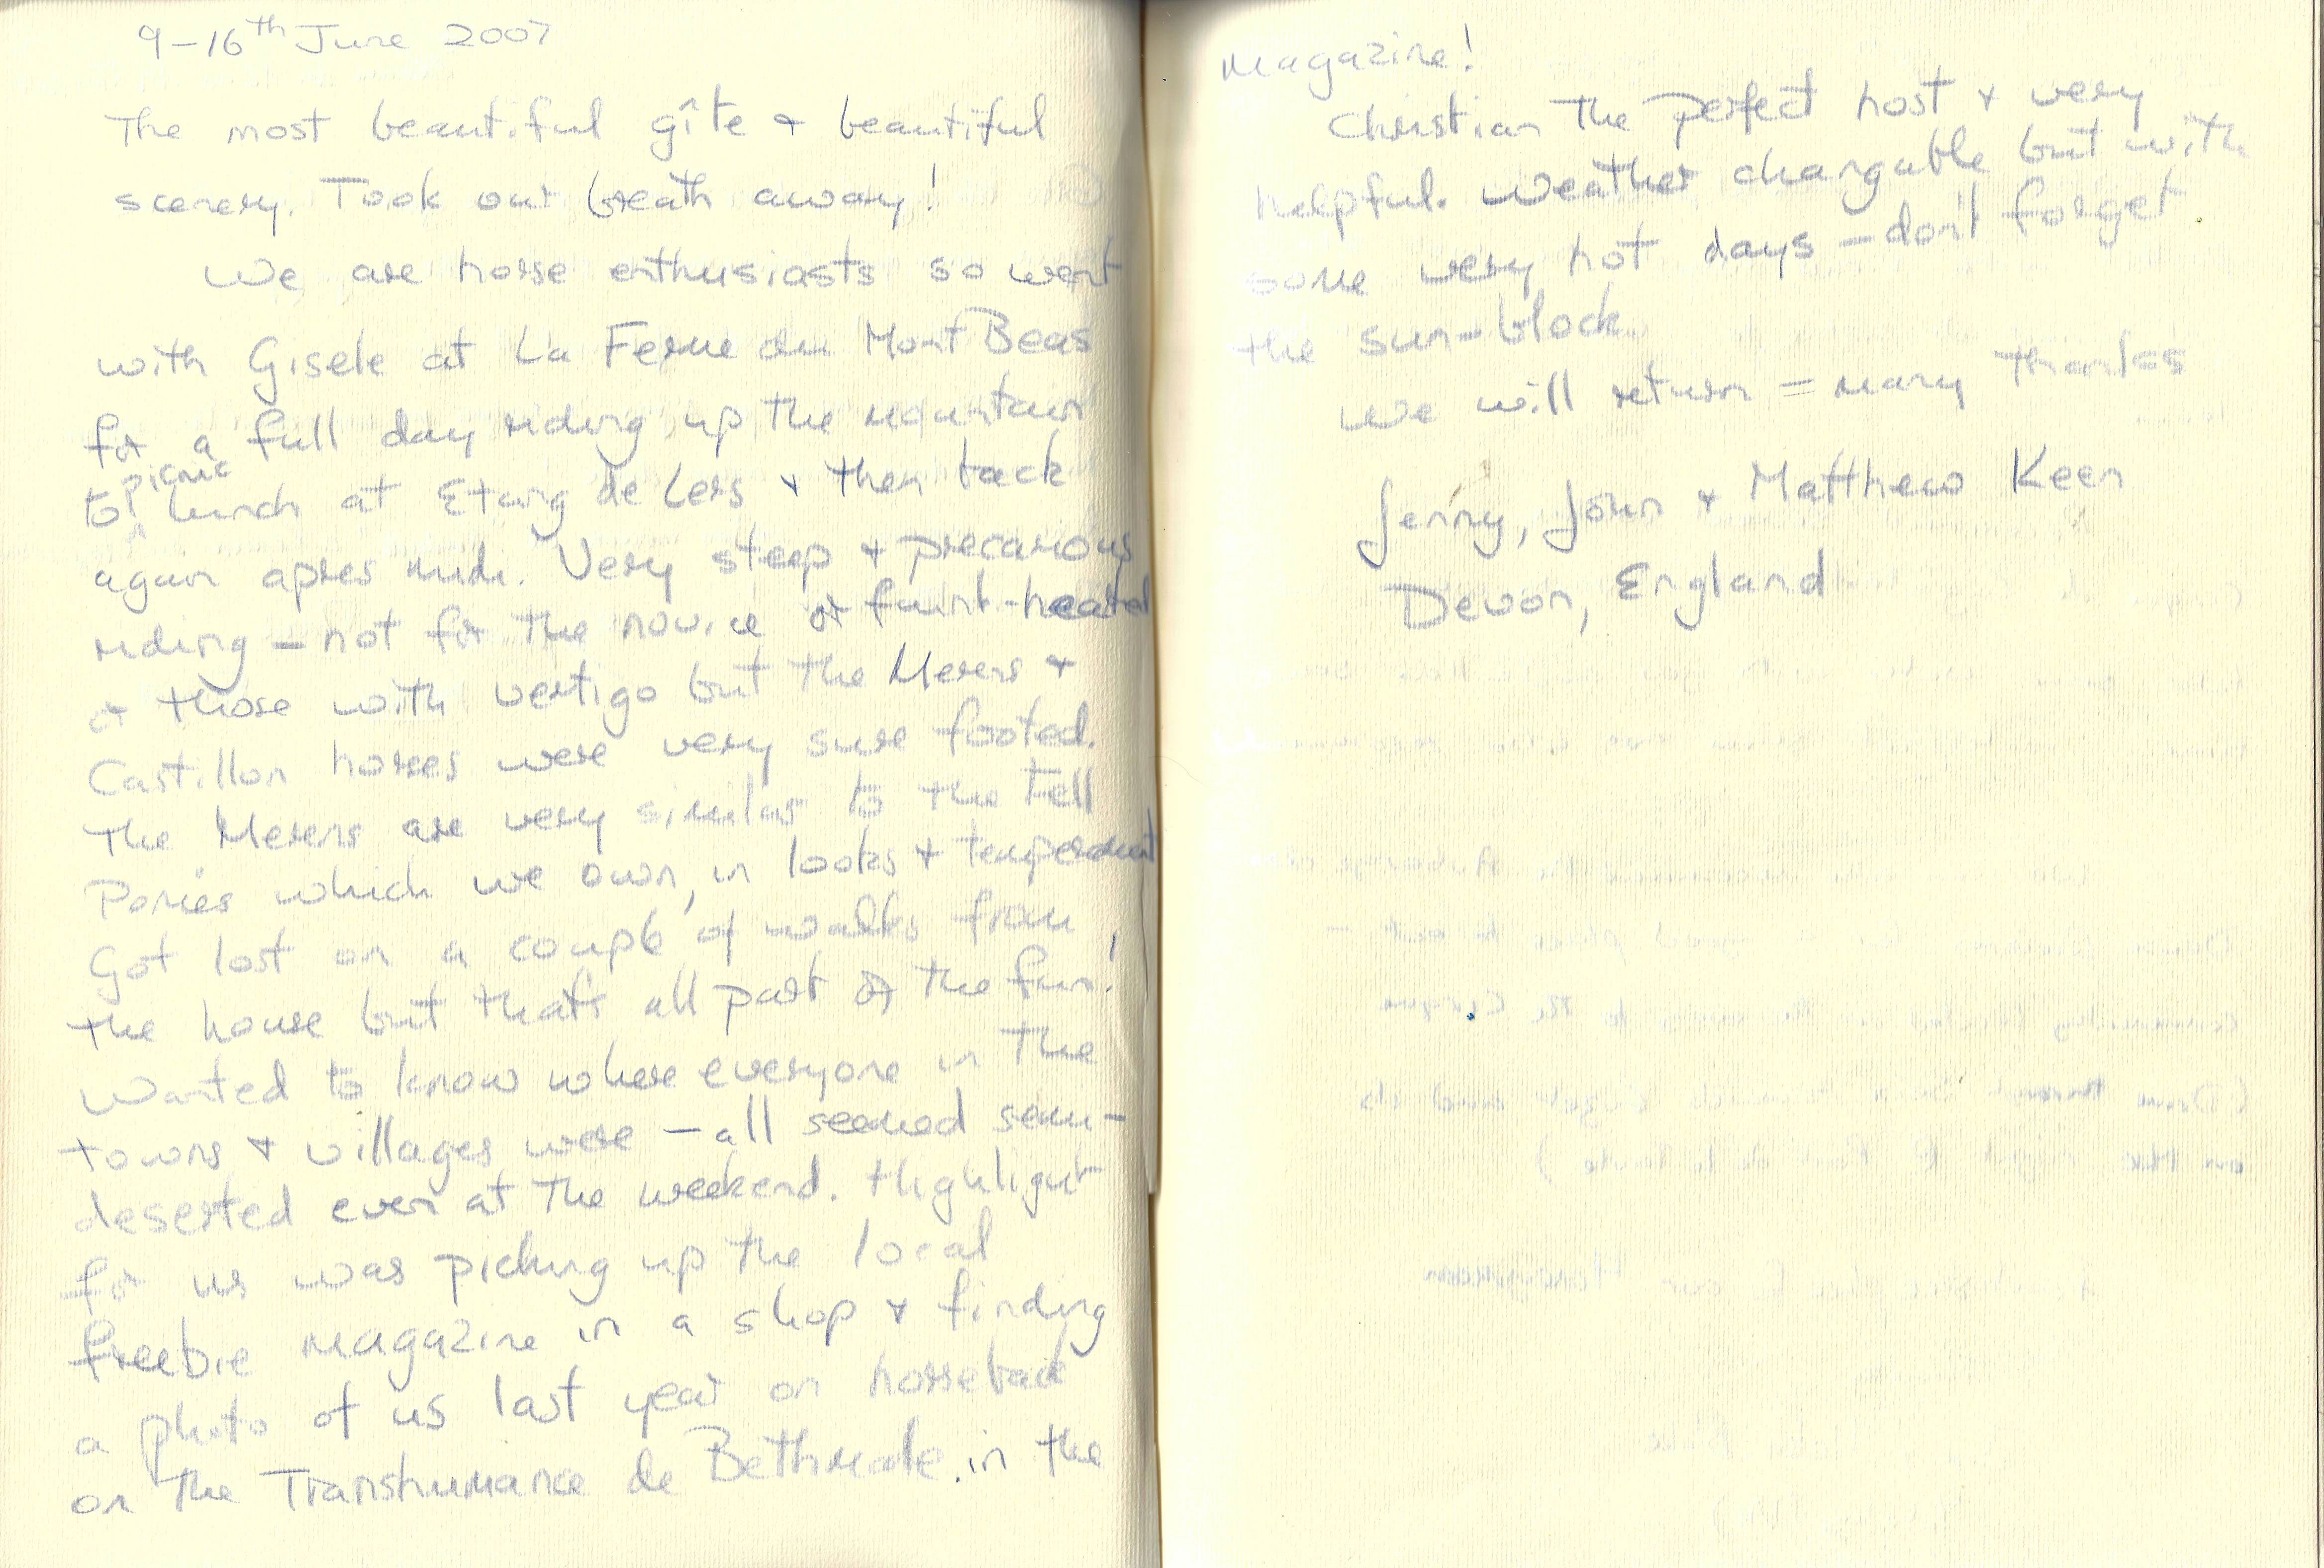 9-16th June 2007
The most beautiful gîte + beautiful
scenery. Took our breath away!
We are horse enthusiasts so went
with Gisele at La Ferme du Mont Beas
for a full day riding up the mountain
to picnic lunch at Etang de Lers + then back
again apres midi. Very steep + precarious
riding - not for the novice or faint-hearted
or those with vertigo but the Merens +
Castillon horses were very sure footed.
The Merens are very similar to the Fell
Ponies which we own, in looks + temperament
Got lost on a couple of walks from
the house but that's all part of the fun!
Wanted to know where everyone in the
towns + villages were - all seemed semi-
deserted even at the weekend. Highlight
for us was picking up the local
freebie magazine in a shop + finding
a photo of us last year on horseback
on the Transhumance de Bethmale in the
magazine!
Christian the perfect host + very
helpful. Weather changable but with
some very hot days - don't forget
the sun-block.
We will return = many thanks
Jenny, John + Matthew Keen
Devon, England